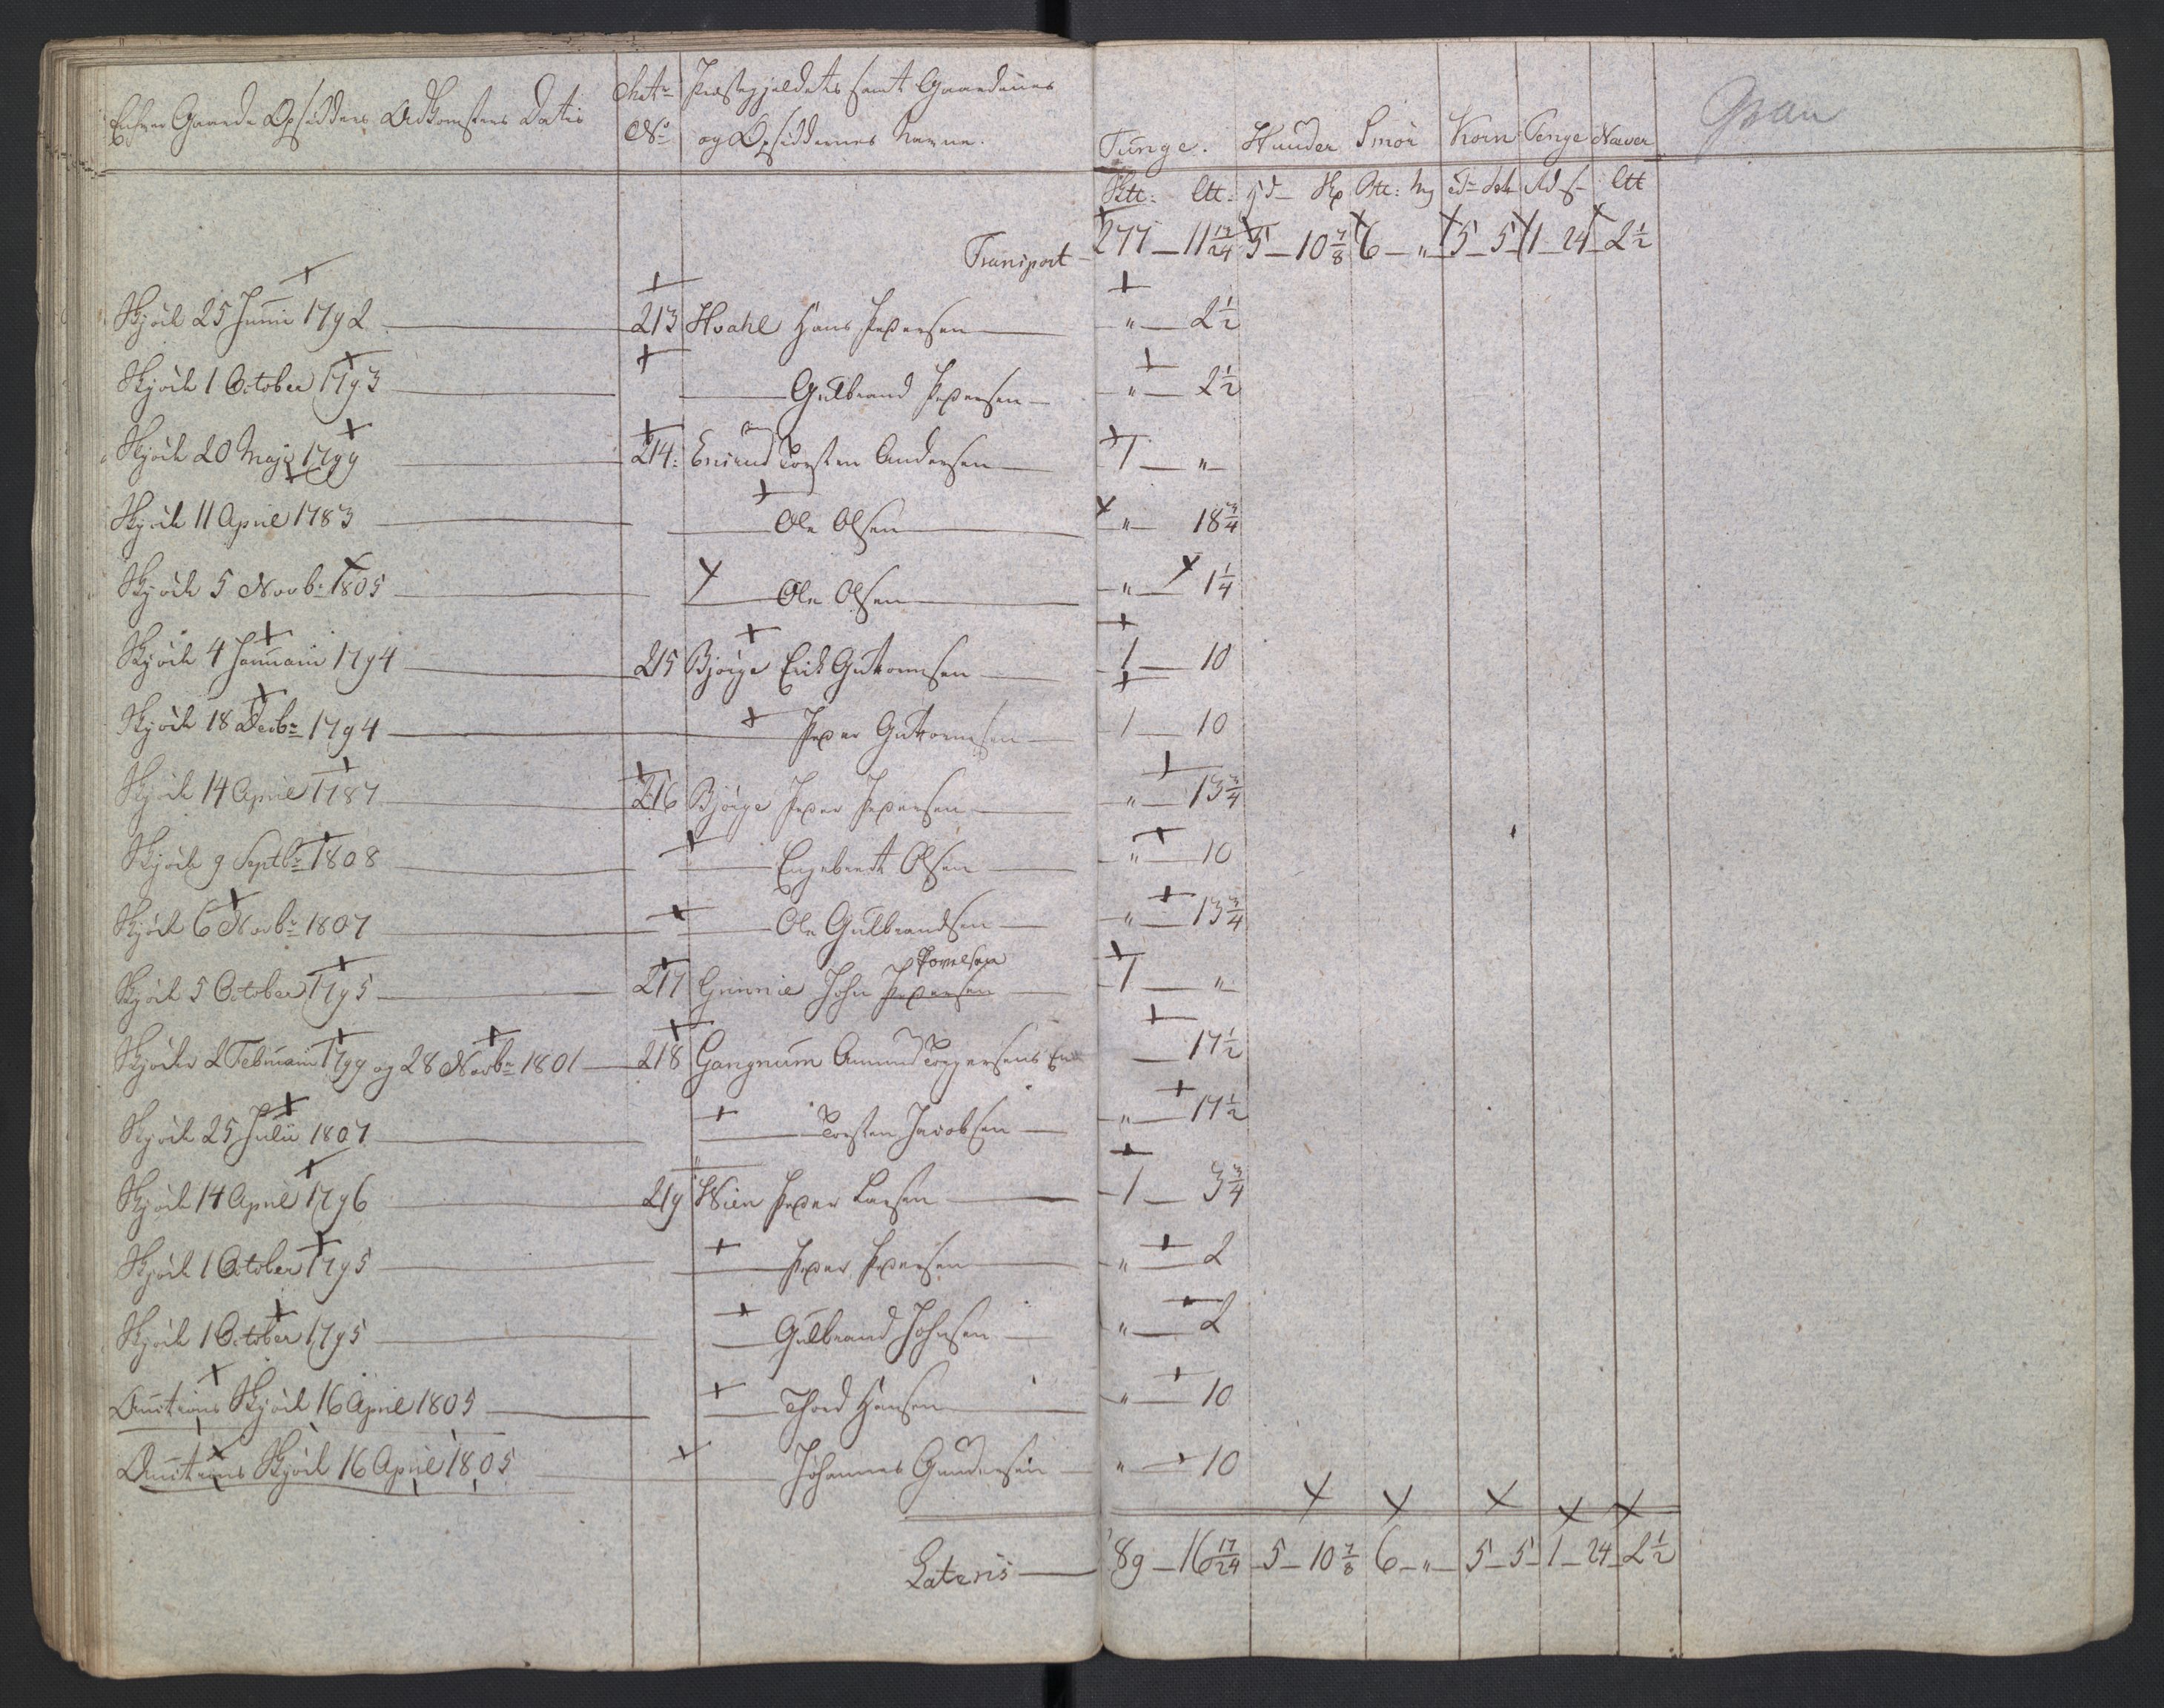 Enhver Gaards Opsidders Adkomsters Datis
Matr
No
Præstegjeldets samt Gaardenes
og Opsiddernes Navne.
Tunge. Huuder Smør Korn Penge Næver
Gran
Transport 277 - 11 19/24 5 - 10 7/8 6 - „ 5 - 5 1 - 24 2 1/2
Skjøde 25 Junii 1792 213 Hvahl Hans Pedersen „ 2 1/2
Skjøde 1 October 1793 Gulbrand Pedersen „ 2 1/2
Skjøde 20 Maji 1799 214: Torsten Andersen 1 „
Skjøde 11 April 1783 Ole Olsen „ 18 3/4
Skjøde 5 Novbr 1805 Ole Olsen „ 1 1/4
Skjøde 4 Januarii 1794 215 Bjørge Erik Guttormsen 1 10
Skjøde 18 Decbr 1794 Peder Guttormsen 1 10
Skjøde 14 April 1787 216 Bjørge Peder Pedersen „ 13 3/4
Skjøde 9 Septbr 1808 Engebreth Olsen „ 10
Skjøde 6 Novbr 1807 Ole Gulbrandsen „ 13 3/4
Povelsen
Skjøde 5 October 1795 217 Grinnie John Pedersen 1 „
Skjøder 2 Februarii 1799 og 28 Novbr 1801 218 Gangnum Amund Torgersens 17 1/2
Skjøde 25 Julii 1807 Torsten Jacobsen „ 17 1/2
Skjøde 14 April 1796 219 Wien Peder Larsen 1 3 3/4
Skjøde 1 October 1795 Peder Pedersen „ 2
Skjøde 1 October 1795 Gulbrand Johnsen „ 2
Auctions Skjøde 16 April 1805 Thord Hansen „ 10
Auctions Skjøde 16 April 1805 Johannes Gundersen „ 10
Lateris 89 - 16 17/24 5 - 10 7/8 6 - „ 5 - 5 1 - 24 2 1/2